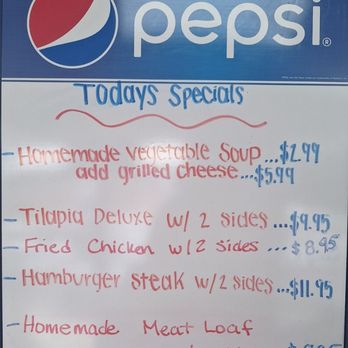 pepsi
Todays Specials
- Homemade vegetable Soup...$2.99
add grilled cheese...$5.99
- Tilapia Deluxe w/ 2 sides...$9.95
- Fried Chicken w/2 sides ...$8.95
- Hamburger steak w/2 sides...$11.95
- Homemade Meat Loaf